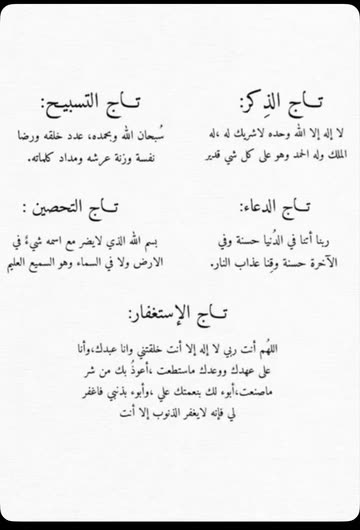 تـاج الذِكر:
لا إله إلا الله وحده لاشريك له ،له
الملك وله الحمد وهو على كل شي قدير
تـاج التسبيح:
سُبحان الله وبحمده، عدد خلقه ورضا
نفسة وزنة عرشه ومداد كلماته.
تـاج الدعاء:
ربنا أتنا في الدُنيا حسنة وفي
الآخرة حسنة وقِنا عذاب النار.
تـاج التحصين :
بسم الله الذي لايضر مع اسمه شيءٌ في
الارض ولا في السماء وهو السميع العليم
تـاج الإستغفار:
اللهُم أنت ربي لا إله إلا أنت خلقتني وانا عبدك،وأنا
على عهدك ووعدك ماستطعت ،أعوذُ بك من شر
ماصنعت،أبوء لك بنعمتك علي ،وأبوء بذنبي فاغفر
لي فإنه لايغفر الذنوب إلا أنت